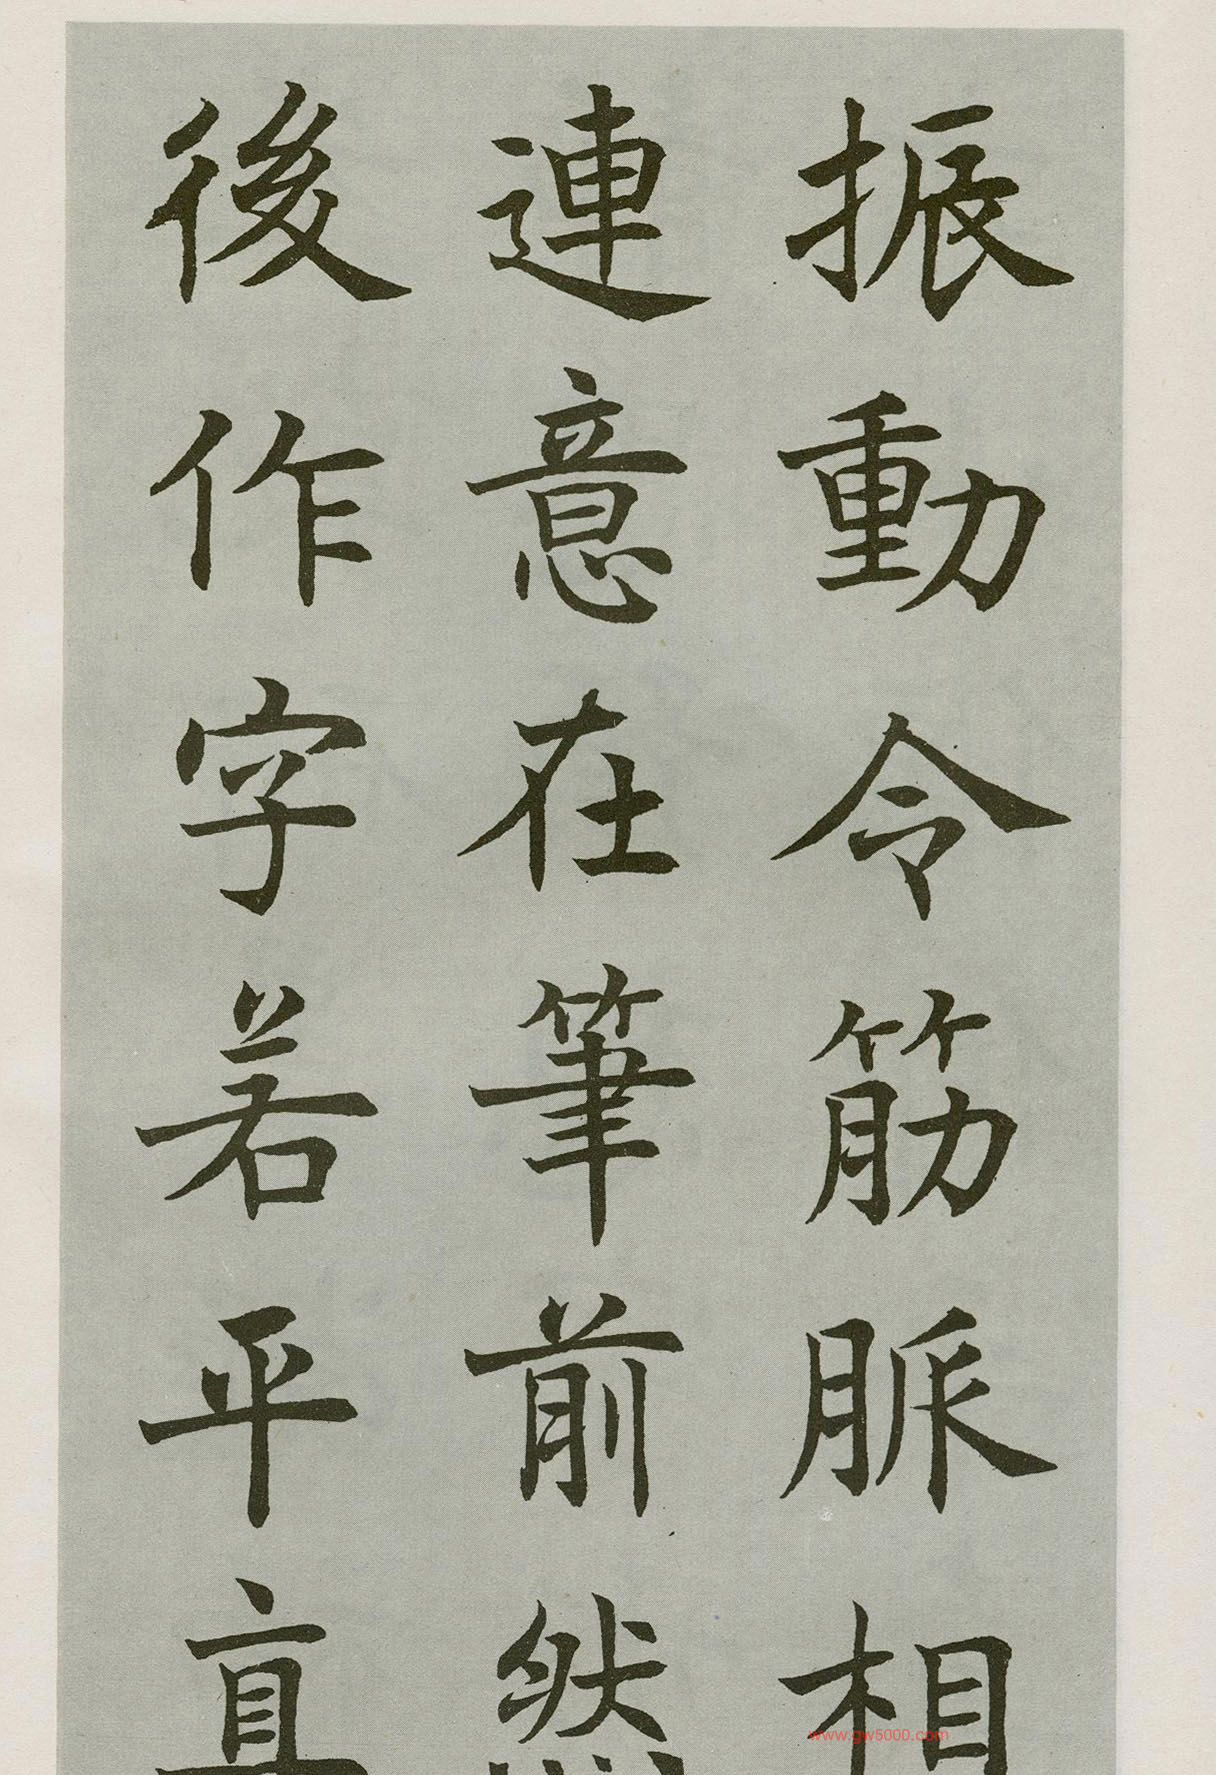 振動令筋脈相
連意在筆前然
後作字若平直
www.gw5000.com